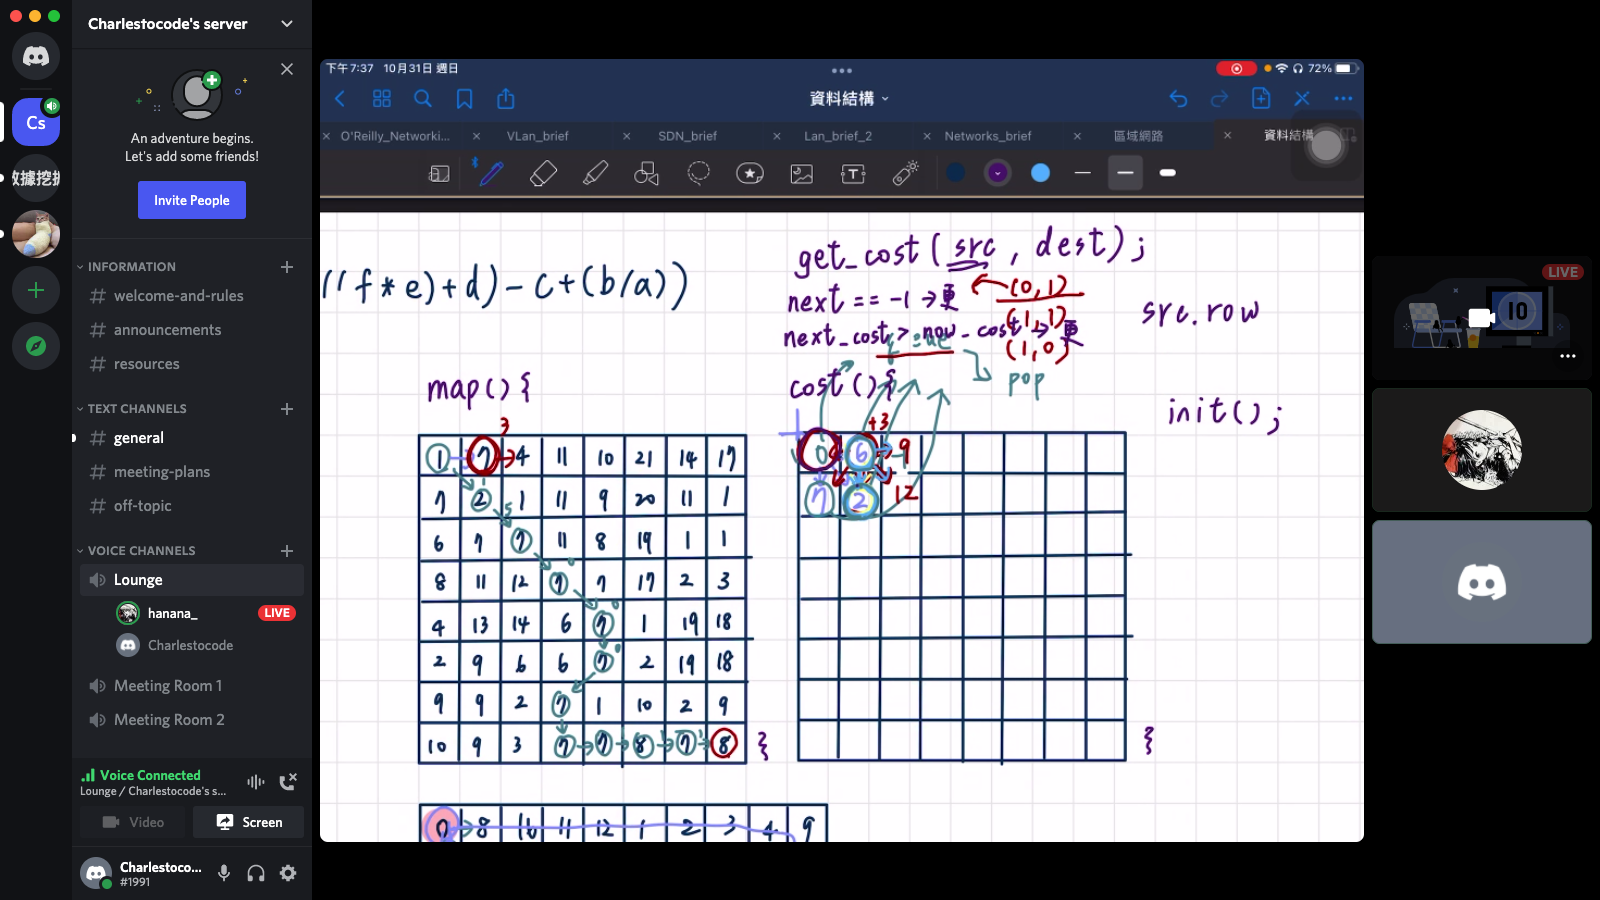 Charlestocode's server
Cs
數據挖掘
An adventure begins.
Let's add some friends!
Invite People
INFORMATION
# welcome-and-rules
# announcements
# resources
TEXT CHANNELS
# general
# meeting-plans
# off-topic
VOICE CHANNELS
Lounge
hanana_ LIVE
Charlestocode
Meeting Room 1
Meeting Room 2
Voice Connected
Lounge / Charlestocode's s...
Video Screen
Charlestoco...
#1991
下午7:37 10月31日 週日
72%
資料結構
O'Reilly_Networki... VLan_brief SDN_brief Lan_brief_2 Networks_brief 區域網路 資料結構
get_cost(src, dest);
((f*e)+d)-c+(b/a))
next == -1 → 更
(0,1)
src.row
next_cost > now_cost → 更
(1,1)
(1,0)
pop
map(){
cost(){
init();
3
+3
1 7 4 11 10 21 14 17
7 2 1 11 9 20 11 1
6 7 7 11 8 19 1 1
8 11 12 7 7 17 2 3
4 13 14 6 7 1 19 18
2 9 6 6 7 2 19 18
9 9 2 7 1 10 2 9
10 9 3 7 7 8 7 8
}
0 6 9
7 2 12
}
0 8 16 11 12 1 2 3 4 9
LIVE
10